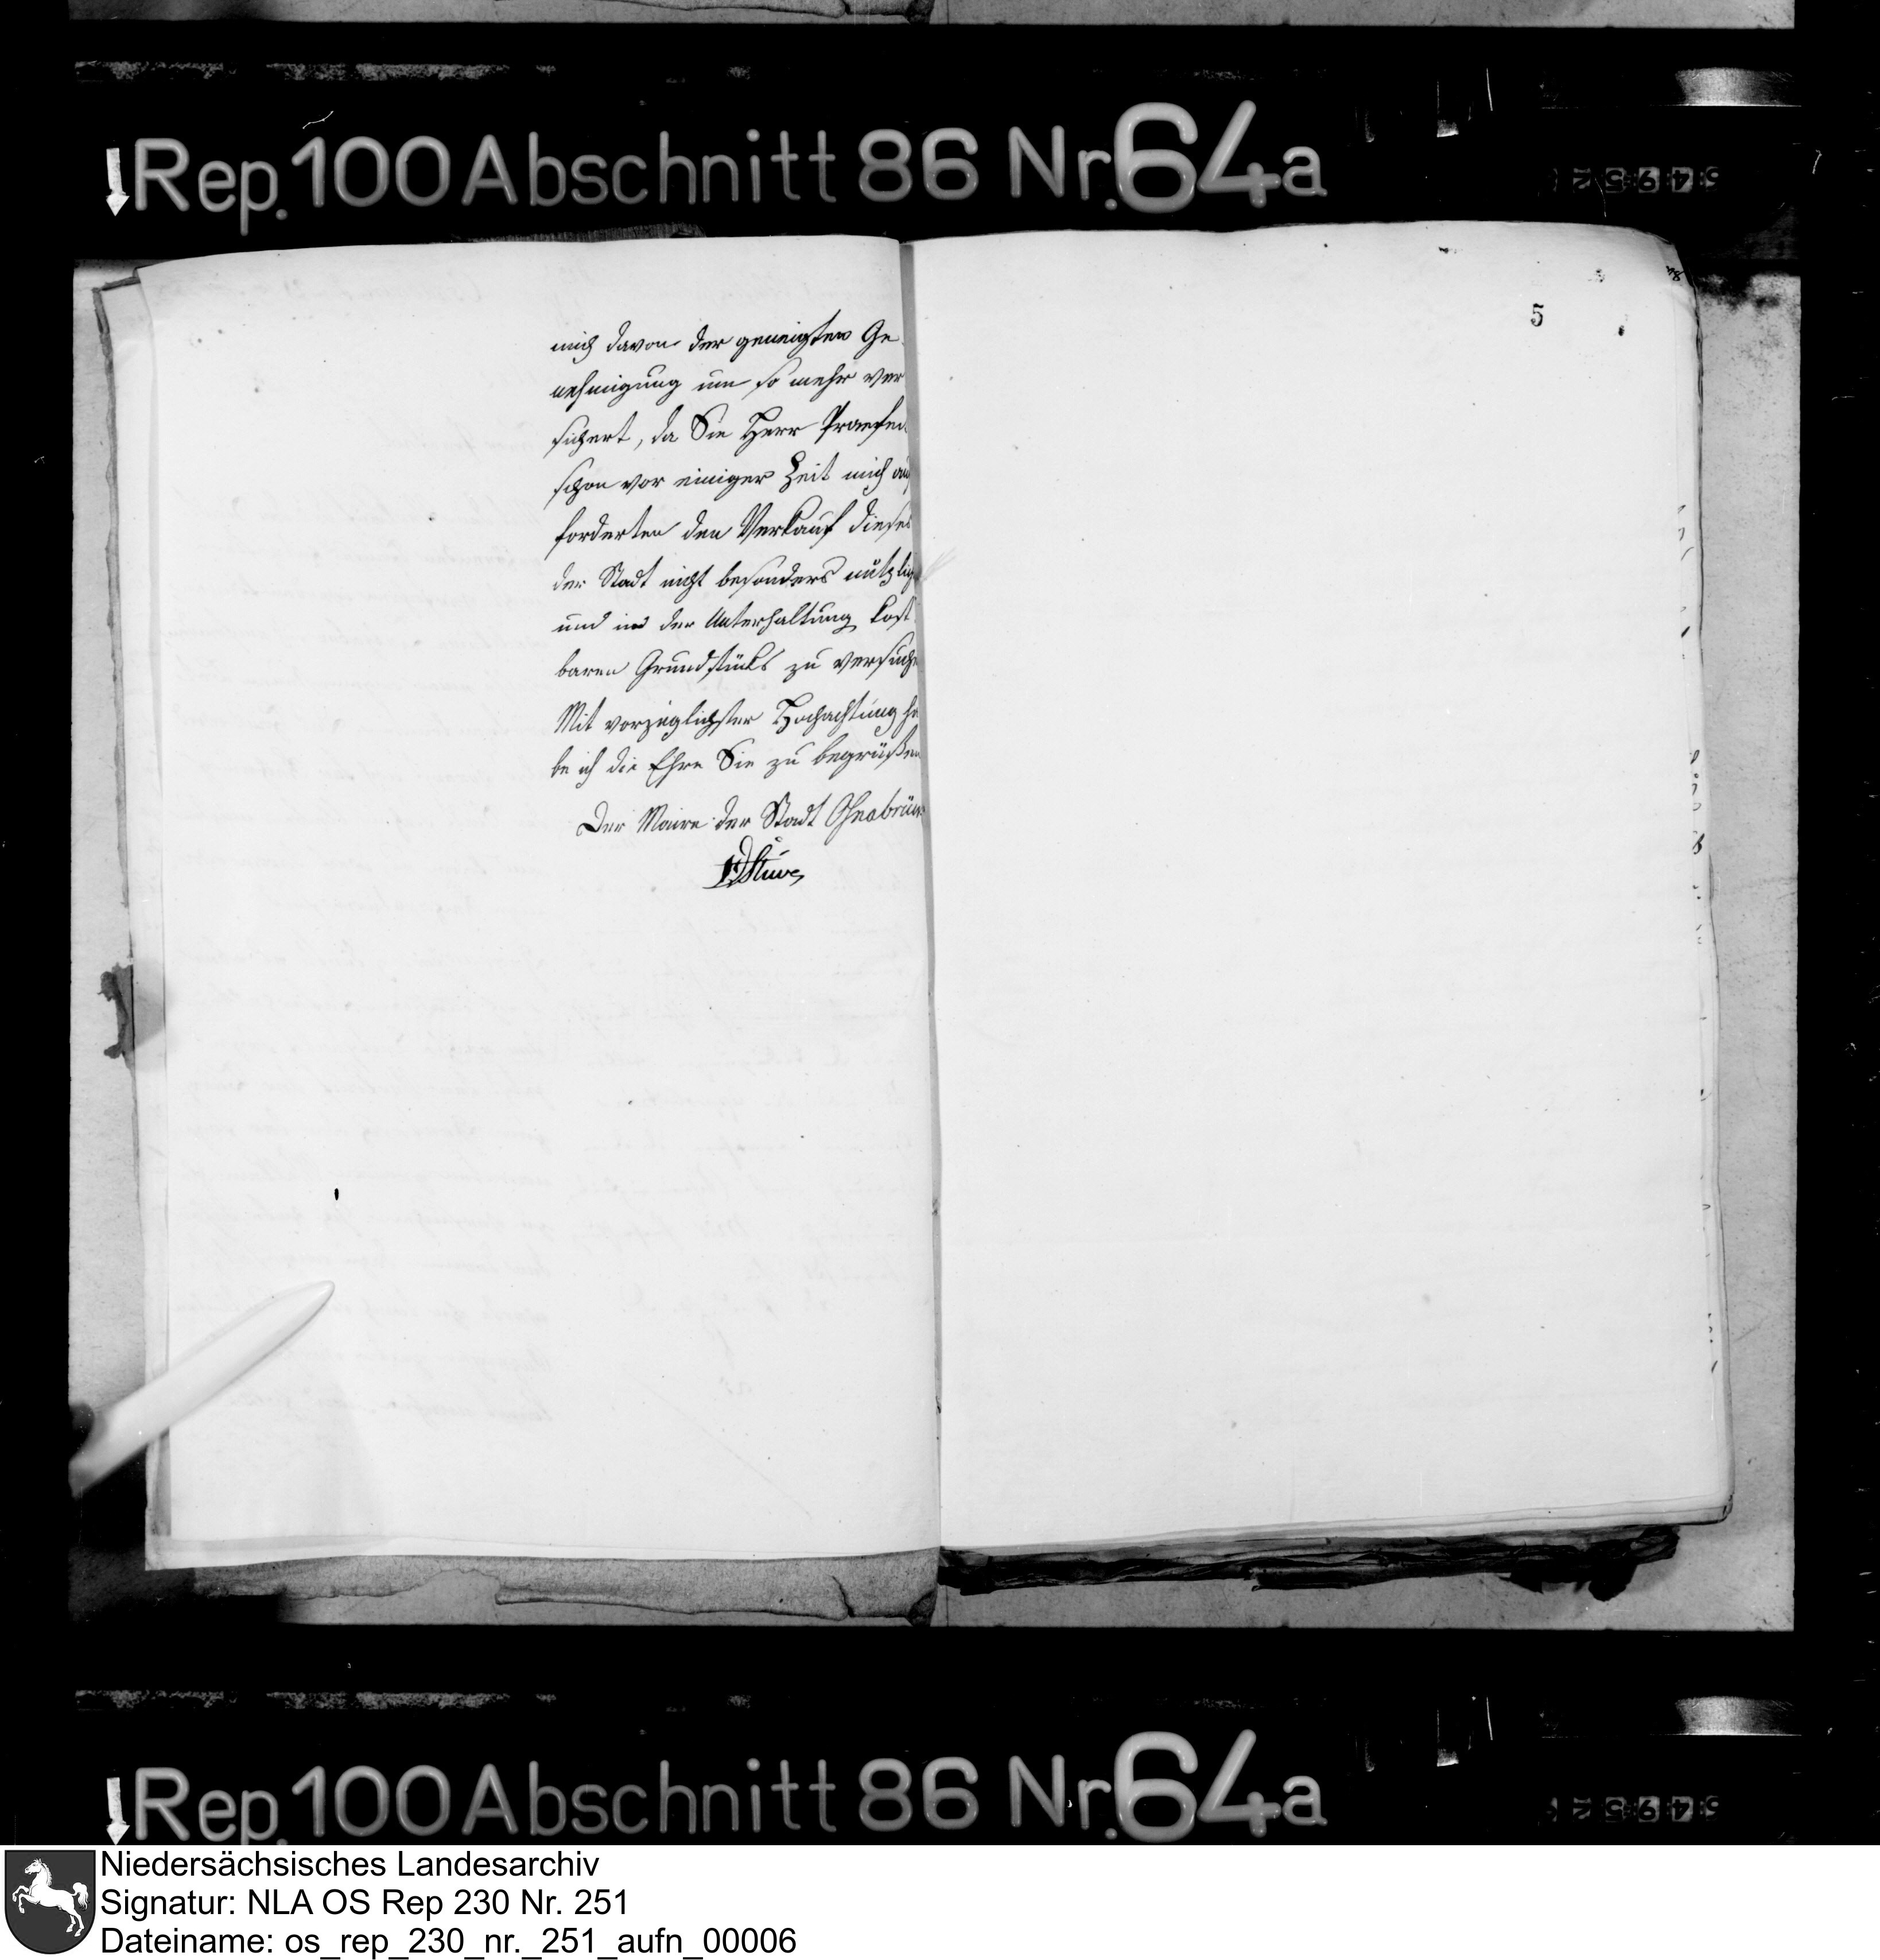 Rep. 100 Abschnitt 86 Nr. 64a
5
mich davon der geneigten Ge
nehmigung um so mehr ver
sichert, da Sie Herr Praefec
schon vor einiger Zeit mich auf
forderten den Verkauf dieses
der Stadt nicht besonders nützlich
und in der Unterhaltung kost
baren Grundstücks zu versuche
Mit vorzüglichster Hochachtung ha
be ich die Ehre Sie zu begrüßen
Der Maire der Stadt Osnabrück
Stüve
Rep. 100 Abschnitt 86 Nr. 64a
Niedersächsisches Landesarchiv
Signatur: NLA OS Rep 230 Nr. 251
Dateiname: os_rep_230_nr._251_aufn_00006